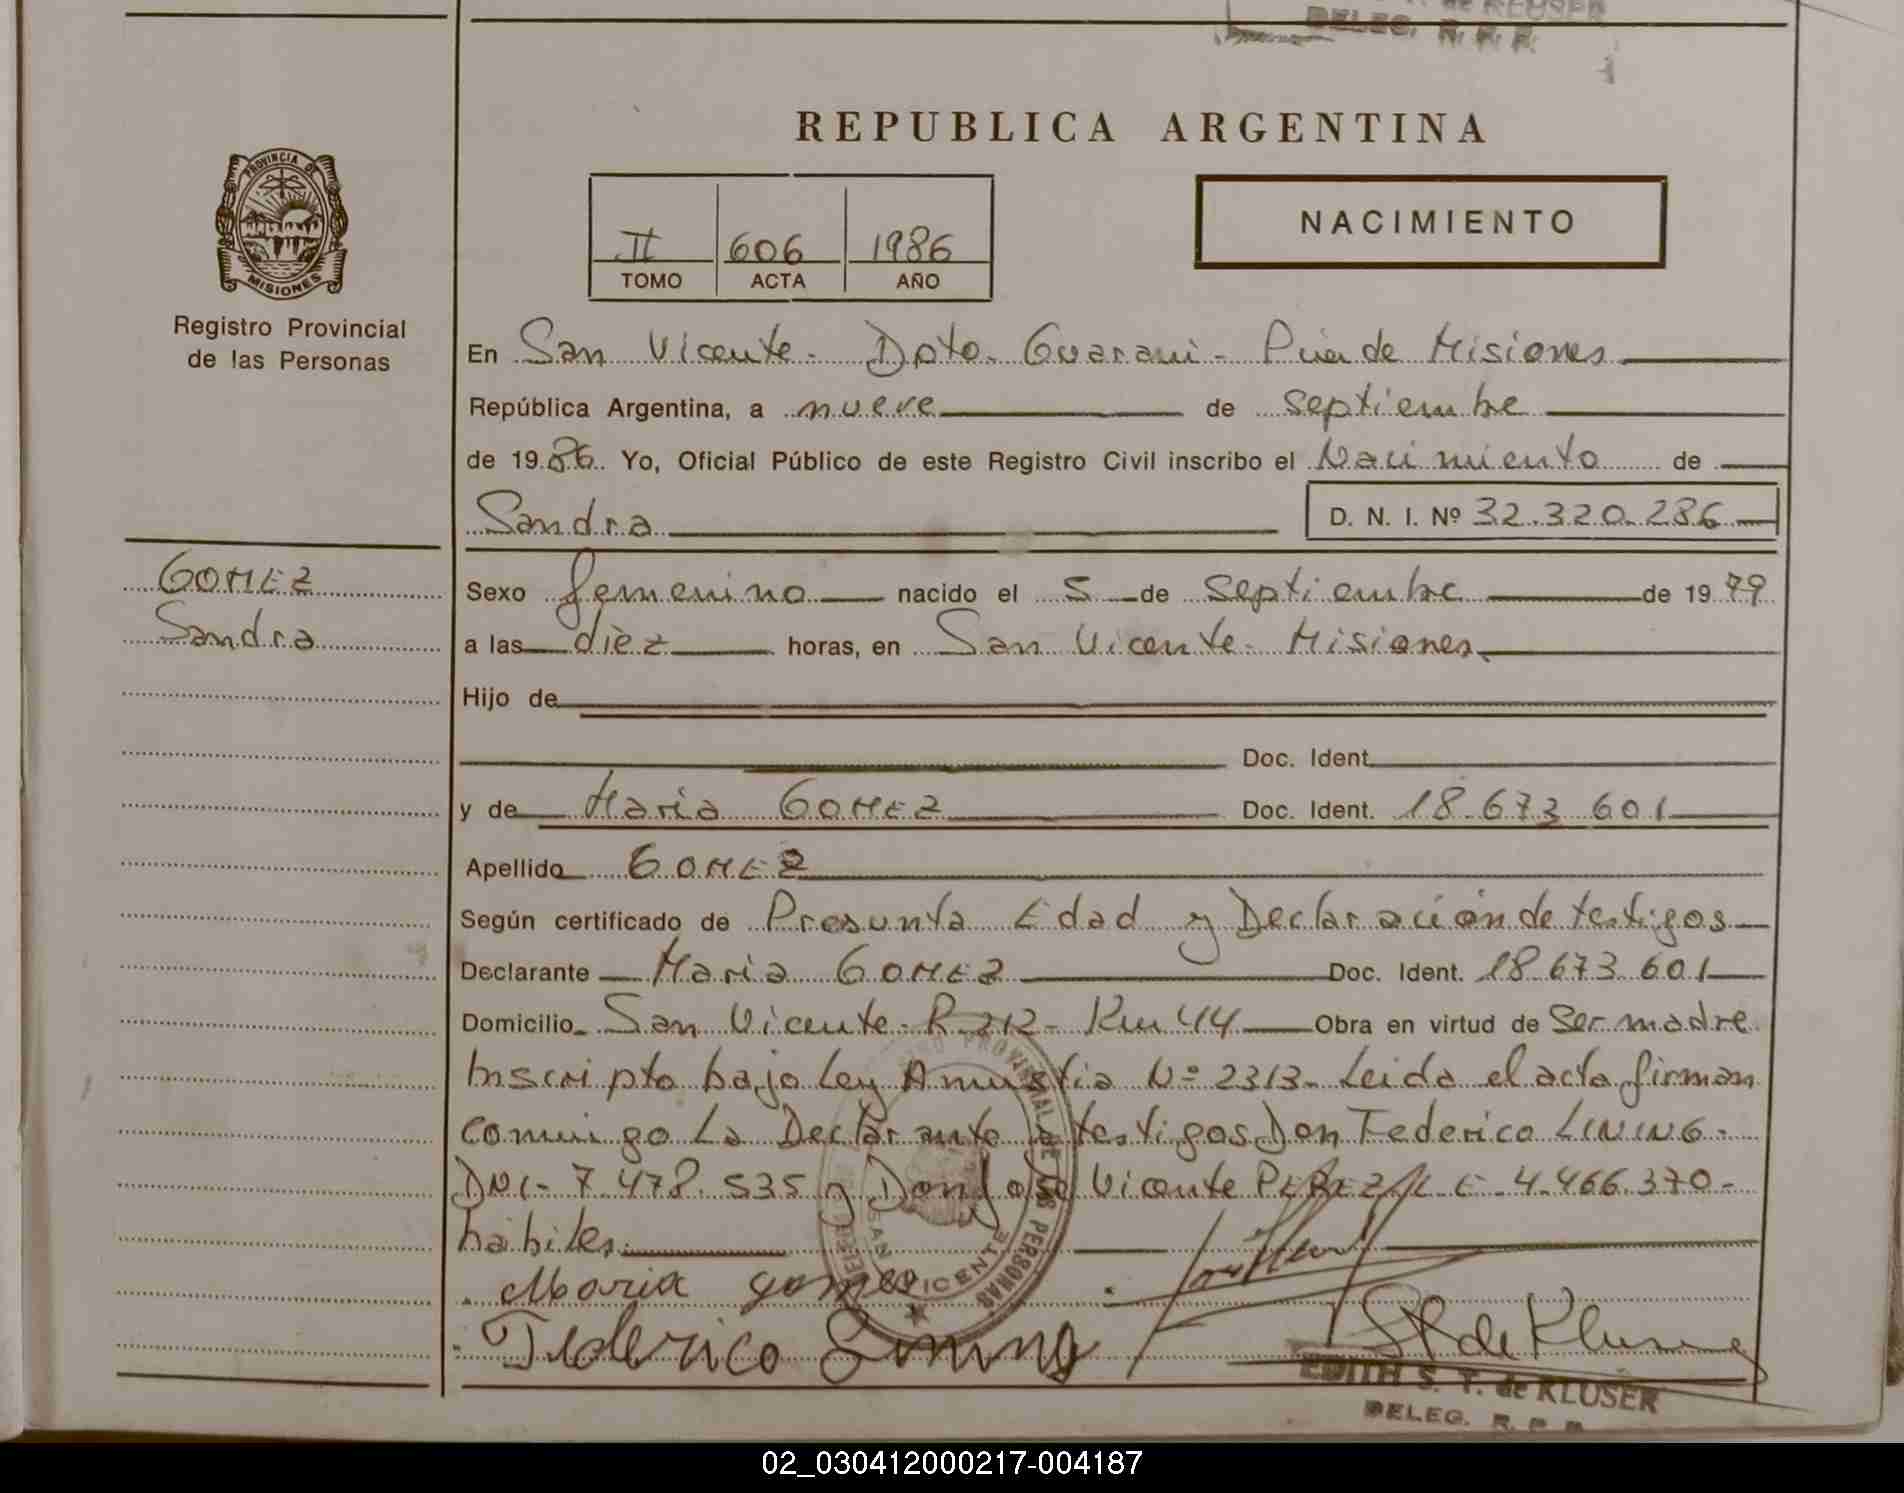 de KLUSER
DELEG. R. P. P.
REPUBLICA ARGENTINA
PROVINCIA DE
MISIONES
Registro Provincial
de las Personas
II 606 1986
TOMO ACTA AÑO
NACIMIENTO
En San Vicente - Dpto. Guarani - Pcia de Misiones
República Argentina, a nueve de septiembre
de 1986. Yo, Oficial Público de este Registro Civil inscribo el Nacimiento de
Sandra D. N. I. Nº 32.320.286
GOMEZ
Sandra
Sexo femenino nacido el 5 de septiembre de 1979
a las diez horas, en San Vicente - Misiones.
Hijo de
Doc. Ident.
y de Maria GOMEZ Doc. Ident. 18.673.601
Apellido GOMEZ
Según certificado de Presunta Edad y Declaración de testigos
Declarante Maria GOMEZ Doc. Ident. 18.673.601
Domicilio San Vicente - R. 212 - Km 44 Obra en virtud de Ser madre
Inscripto bajo Ley Amnistia Nº 2313 - Leida el acta firman
conmigo La Declarante testigos Don Federico LINING -
DNI - 7.478.535 y Don José Vicente PEREZ L E 4.466.370 -
habiles
Maria gomes
Federico Lining
ST de Kluser
EDITH S. T. de KLUSER
DELEG. R. P. P.
REGISTRO PROVINCIAL DE LAS PERSONAS
SAN VICENTE
02_030412000217-004187